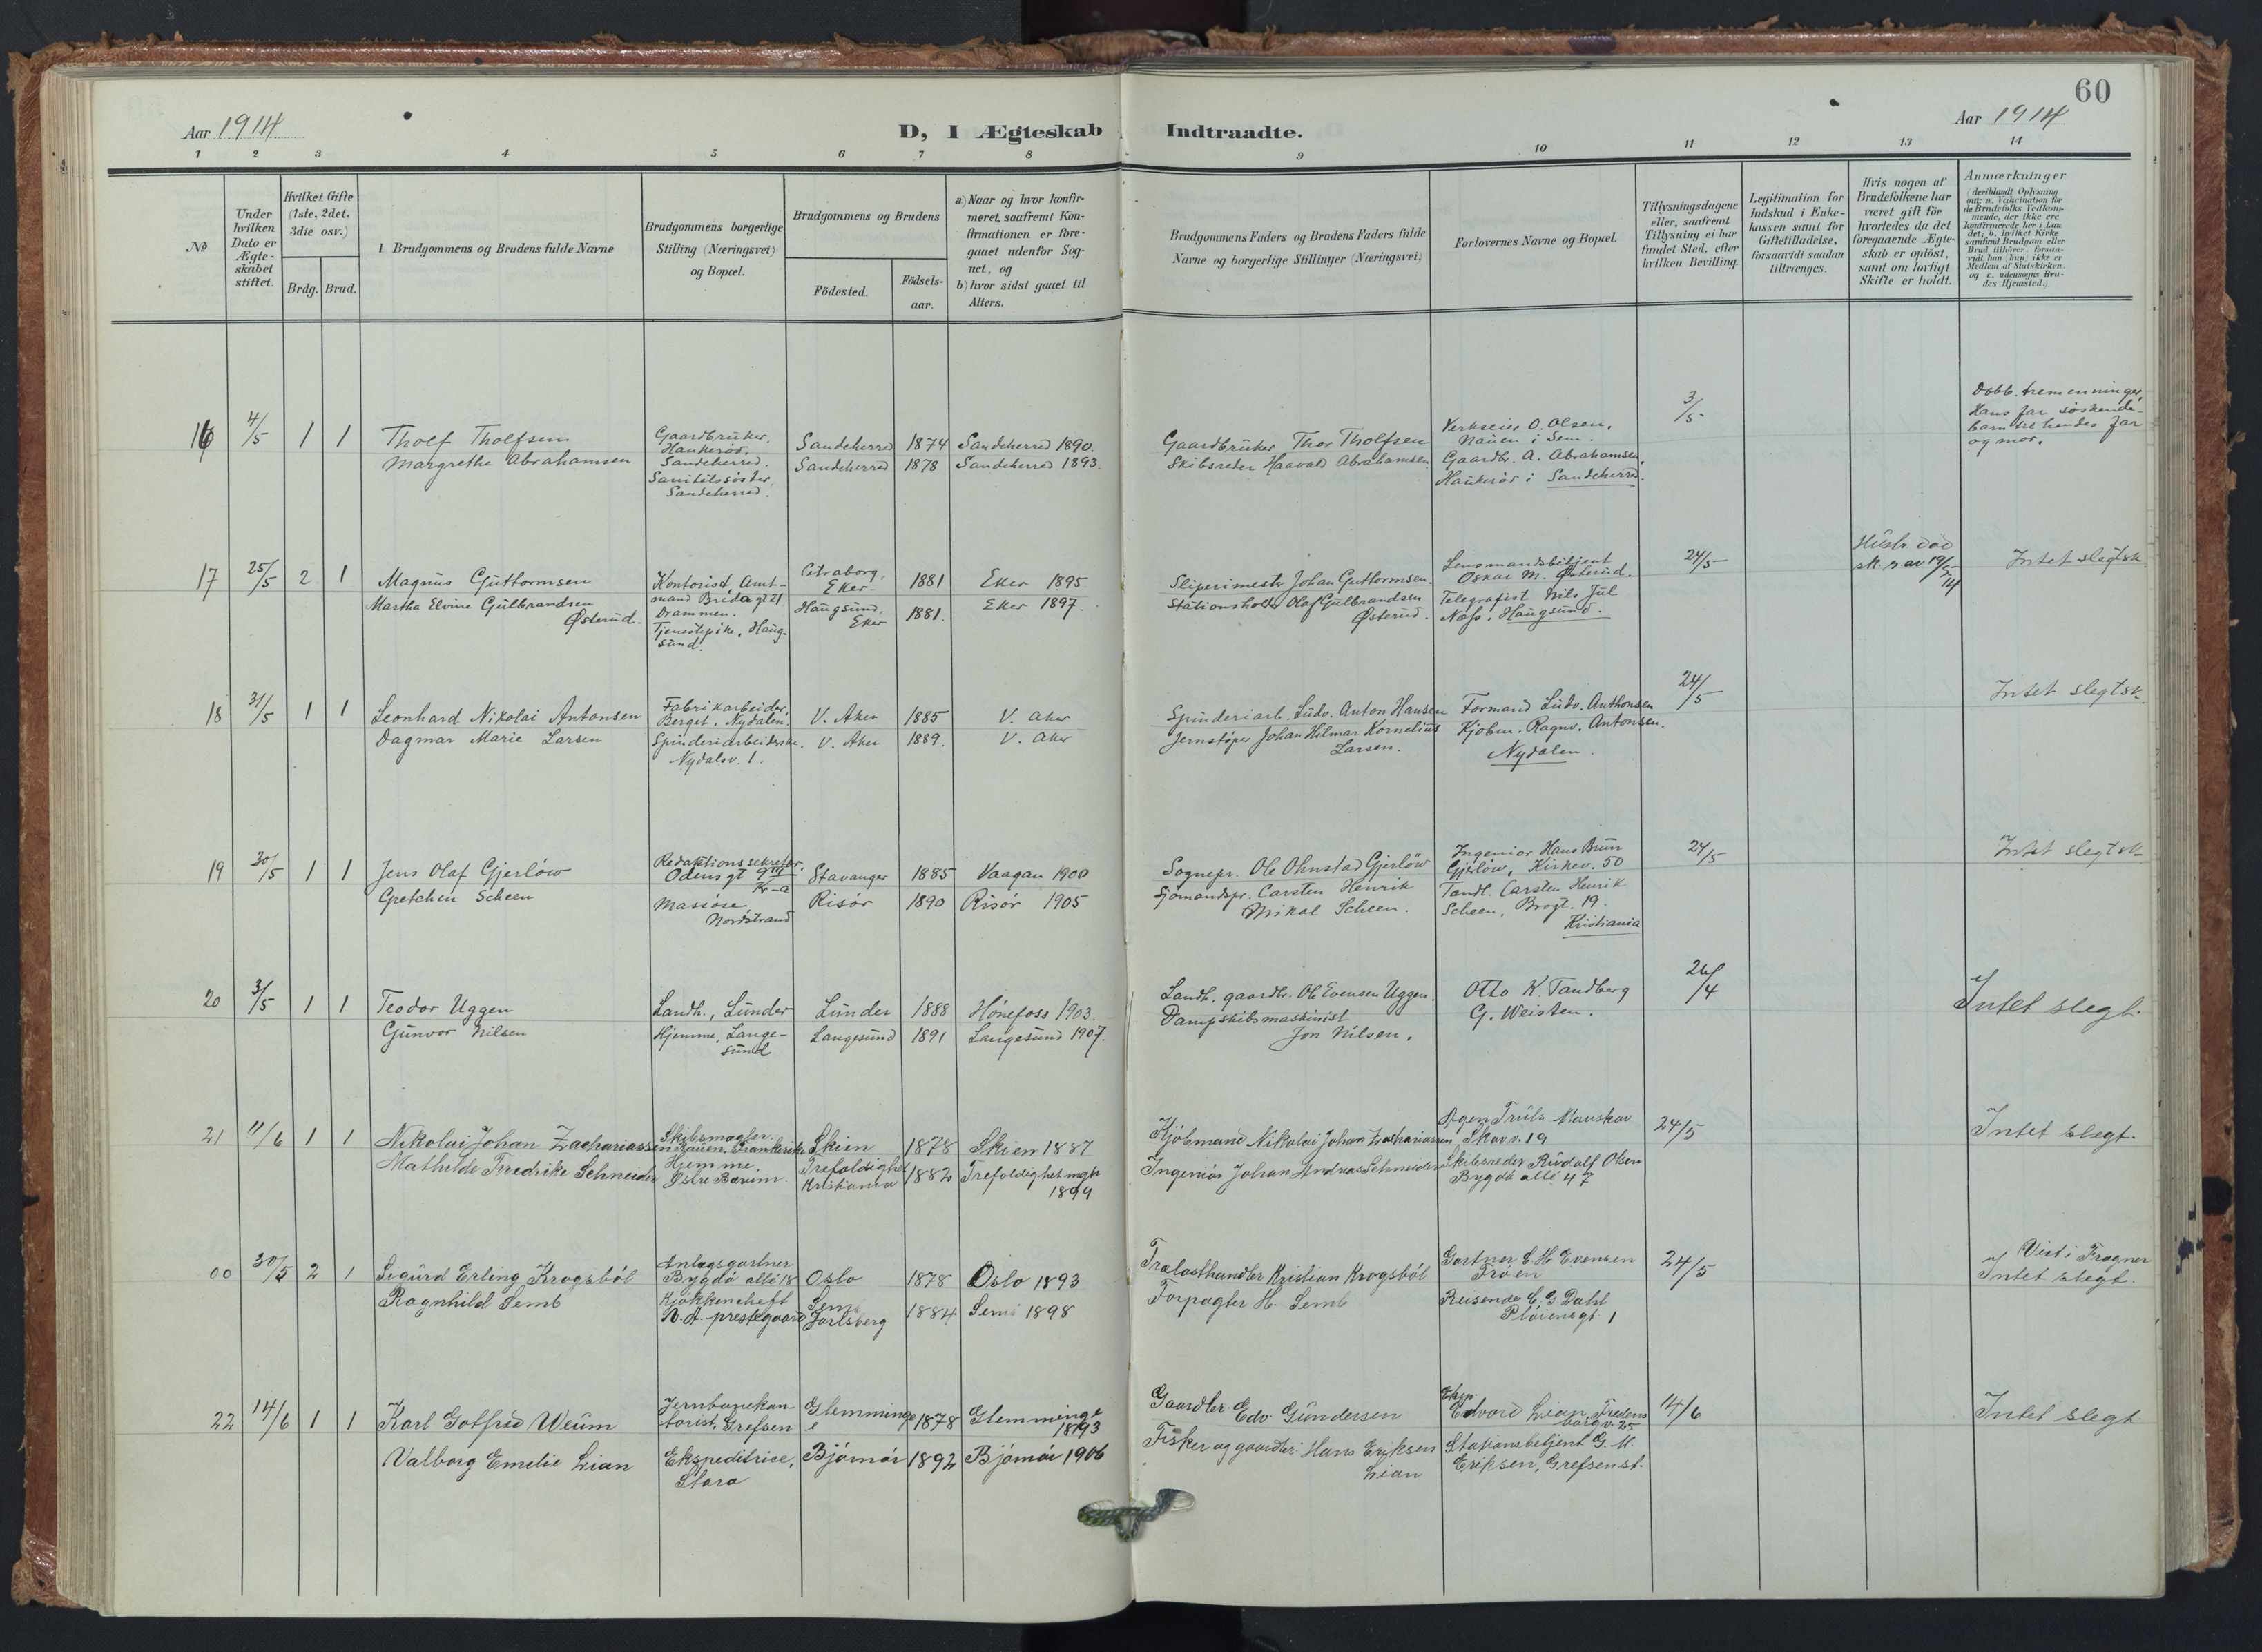 60
Aar 1914
D, I Ægteskab Indtraadte.
Aar 1914
1 2 3 4 5 6 7 8 9 10 11 12 13 14
No
Under hvilken Dato er Ægteskabet stiftet.
Hvilket Gifte (1ste, 2det, 3die osv.)
Brdg. Brud.
Brudgommens og Brudens fulde Navne
Brudgommens borgerlige Stilling (Næringsvei) og Bopæl.
Brudgommens og Brudens
Födested.
Födselsaar.
a) Naar og hvor konfirmeret, saafremt Konfirmationen er foregaaet udenfor Sognet, og
b) hvor sidst gaaet til Alters.
Brudgommens Faders og Brudens Faders fulde Navne og borgerlige Stillinger (Næringsvei)
Forlovernes Navne og Bopæl.
Tillysningsdagene eller, saafremt Tillysning ei har fundet Sted, efter hvilken Bevilling.
Legitimation for Indskud i Enkekassen samt for Giftetilladelse, forsaavidt saadan tiltrænges.
Hvis nogen af Brudefolkene har været gift för hvorledes da det foregaaende Ægteskab er oplöst, samt om lovligt Skifte er holdt.
Anmærkninger
(deriblandt Oplysning om: a. Vakcination for de Brudefolks Vedkommende, der ikke ere konfirmerede her i Landet; b, hvilket Kirkesamfund Brudgom eller Brud tilhörer, forsaavidt han (hun) ikke er Medlem af Statskirken, og c. udensogns Brudes Hjemsted.)
16 4/5 1 1 Tholf Tholfsen
Margrethe Abrahamsen
Gaardbruker,
Haukerød,
Sandeherred.
Sanitetssöster,
Sandeherred.
Sandeherred 1874 Sandeherred 1890.
Sandeherred 1878 Sandeherred 1893.
Gaardbruker Thor Tholfsen
Skibsreder Haavald Abrahamsen
Verkseier O. Olsen,
Nauen i Sem.
Gaardbr. A. Abrahamsen,
Haukeröd i Sandeherred.
3/5
Dobb. tremenninger,
Hans far söskende-
barn til hendes far
og mor.
17 25/5 2 1 Magnus Guttormsen
Martha Elvine Gulbrandsen
Østerud.
Kontorist, Amt-
mand Bredagt 21
Drammen.
Tjenestepike, Haug-
sund.
Eker 1881 Eker 1895
Haugsund,
Eker 1881. Eker 1897.
Sliperimester Johan Guttormsen.
Stationsholder Olaf Gulbrandsen
Østerud.
Lensmandsbetjent
Oskar M. Østerud.
Telegrafist Nils Jul
Næss, Haugsund.
24/5
Hustr. död
19/5 14
Intet slegtsk.
18 31/5 1 1 Leonhard Nikolai Antonsen
Dagmar Marie Larsen
Fabrikarbeider,
Berget, Nydalen.
Spinderiarbeiderske,
Nydalsv. 1.
V. Aker 1885 V. Aker
V. Aker 1889. V. Aker
Spinderiarb. Ludv. Anton Hansen
Jernstöper Johan Hilmar Kornelius
Larsen.
Formand Ludv. Anthonsen
Kjöbm. Ragnv. Antonsen.
Nydalen.
24/5
Intet slegtsk.
19 30/5 1 1 Jens Olaf Gjerlöw
Gretchen Scheen
Redaktionssekretær,
Odensgt 9 III
Kr-a
Massöse,
Nordstrand
Stavanger 1885 Vaagan 1900
Risör 1890 Risör 1905
Sognepr. Ole Ohnstad Gjerlöw
Sjömandspr. Carsten Henrik
Mikal Scheen.
Ingeniör Hans Brun
Gjerlöw, Kirkev. 50
Tandl. Carsten Henrik
Scheen, Brogt. 19.
Kristiania
24/5
Intet slegtsk
20 3/5 1 1 Teodor Uggen
Gunvor Nilsen
Landh., Lunder
Hjemme, Lange-
sund
Lunder 1888 Hönefoss 1903.
Langesund 1891 Langesund 1907.
Landh. gaardbr. Ole Evensen Uggen.
Dampskibsmaskinist
Jon Nilsen.
Otto K. Tandberg
G. Weisten.
26/4
Intet slegt.
21 11/6 1 1 Nikolai Johan Zachariassen
Mathilde Fredrike Schneider
Skibsmægler,
Rouen, Frankerike
Hjemme,
Østre Bærum
Skien 1878 Skien 1887
Trefoldighet
Kristiania 1882 Trefoldighet mgh
1899
Kjöbmand Nikolai Johan Zachariassen
Ingeniör Johan Andreas Schneider
Agent Truls Mauskow
Skovv. 19
Skibsreder Rudolf Olsen
Bygdö allé 47
24/5
Intet slegt.
00 30/5 2 1 Sigurd Erling Krogsböl
Ragnhild Semb
Anlægsgartner
Bygdö allé 18
Kjökkenchef
V. A. prestegaard
Oslo 1878 Oslo 1893
Sem
Jarlsberg 1884 Sem 1898
Trælasthandler Kristian Krogsböl
Forpagter H. Semb
Gartner C. H. Evensen
Fröen
Reisende C. G. Dahl
Plöiensgt. 1
24/5
Viet i Frogner
Intet slegt.
22 14/6 1 1 Karl Gotfred Weum
Valborg Emilie Lian
Jernbanekon-
torist, Grefsen
Ekspeditrice,
Glemminge 1878 Glemminge
1893
Bjørnör 1892 Bjørnör 1906
Gaardbr. Edv. Gundersen
Fisker og gaardbr. Hans Eriksen
Lian
Eksp.
Edvard Lian, Fredens-
borgv. 25
Stationsbetjent G. M.
Eriksen, Grefsen st.
14/6
Intet slegt.